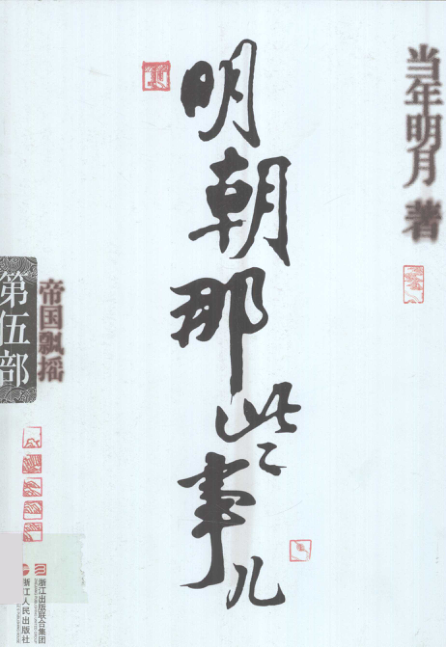 当年明月 著
明朝那些事儿
第伍部
帝国飘摇
浙江出版联合集团
浙江人民出版社